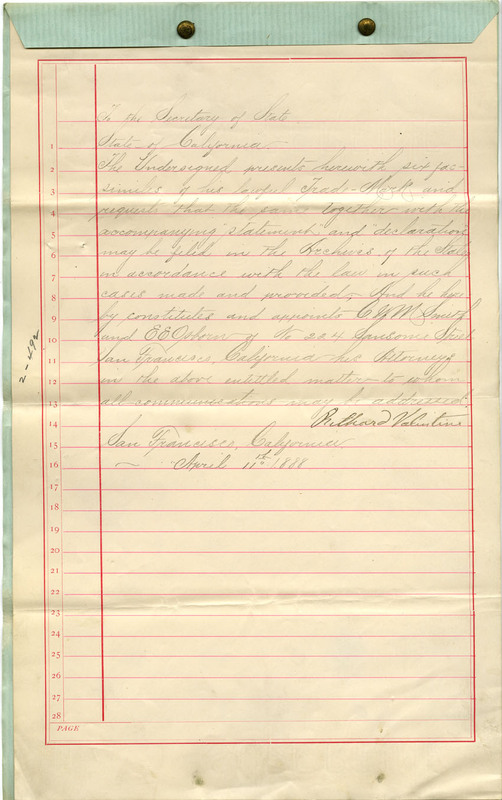 To the Secretary of State
State of California
The Undersigned presents herewith six fac-
similes of his lawful Trade-Mark and
requests that the same together with the
accompanying "statement" and "declaration"
may be filed in the Archives of the State
in accordance with the law in such
cases made and provided, And he here-
by constitutes and appoints C W M Smith
and E E Osborn of No 224 Sansome Street
San Francisco, California his Attorneys
in the above intitled matter to whom
all communications may be addressed.
Richard Valentine
San Francisco, California
April 11th 1888
2-492
1
2
3
4
5
6
7
8
9
10
11
12
13
14
15
16
17
18
19
20
21
22
23
24
25
26
27
28
PAGE